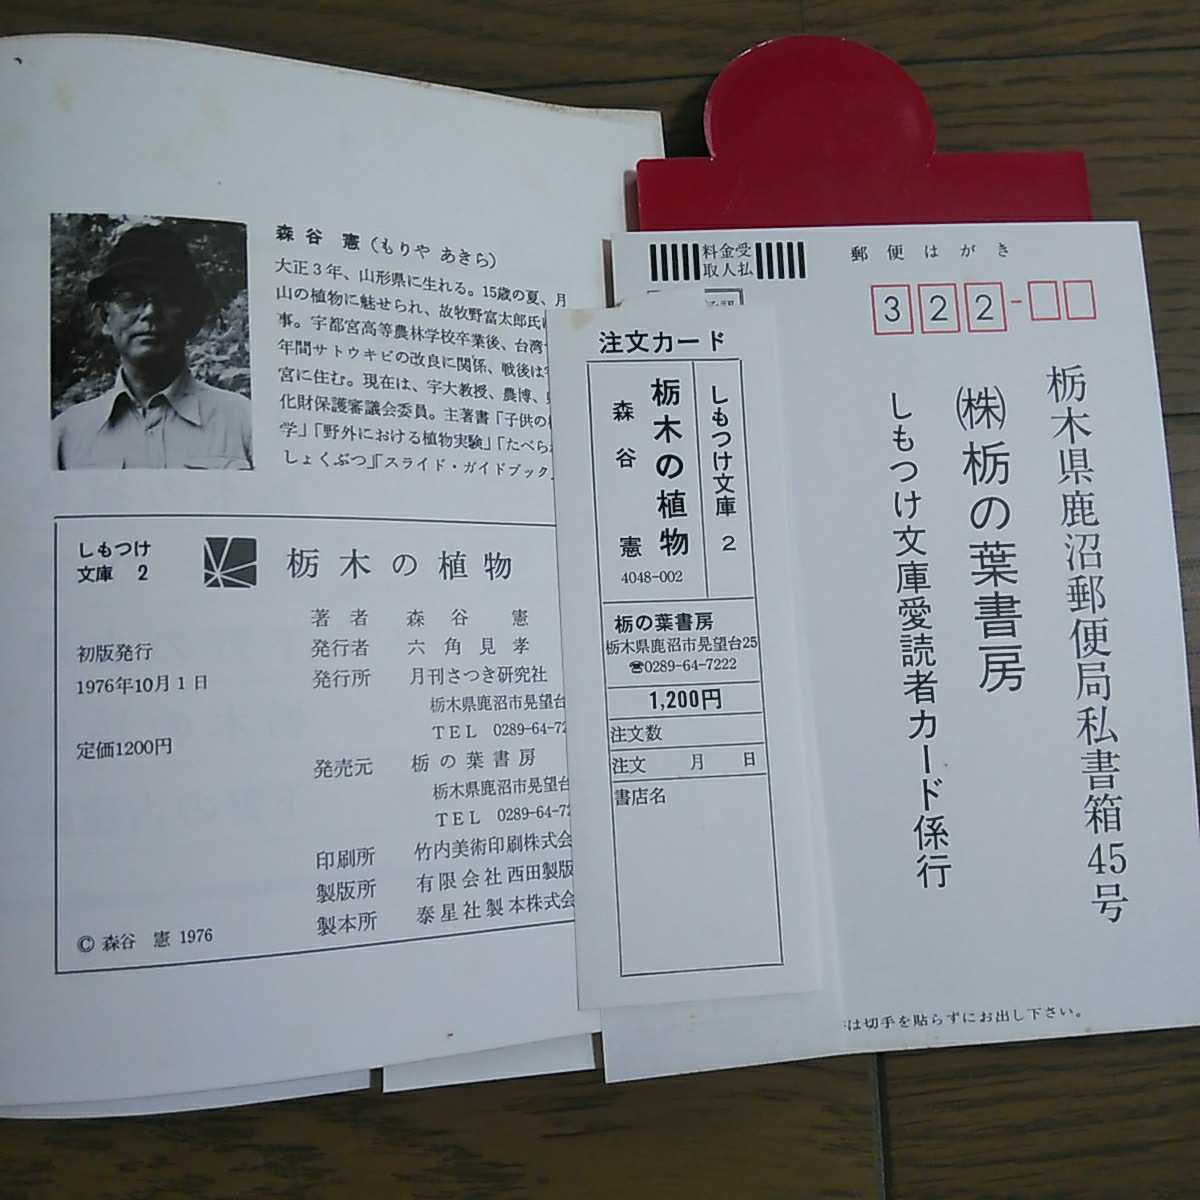 森谷 憲(もりや あきら)
大正3年、山形県に生れる。15歳の夏、月
山の植物に魅せられ、故牧野富太郎氏に
事。宇都宮高等農林学校卒業後、台湾
年間サトウキビの改良に関係、戦後は
宮に住む。現在は、宇大教授、農博、
化財保護審議会委員。主著書「子供の
学」「野外における植物実験」「たべら
しょくぶつ」「スライド・ガイドブック」
しもつけ
文庫 2
栃木の植物
初版発行
1976年10月1日
定価1200円
著者 森谷 憲
発行者 六角見孝
発行所 月刊さつき研究社
栃木県鹿沼市晃望台
TEL 0289-64-72
発売元 栃の葉書房
栃木県鹿沼市晃望台
TEL 0289-64-72
印刷所 竹内美術印刷株式会
製版所 有限会社西田製版
製本所 泰星社製本株式会
© 森谷 憲 1976
注文カード
しもつけ文庫 2
栃木の植物
森谷 憲
4048-002
栃の葉書房
栃木県鹿沼市晃望台25
☎0289-64-7222
1,200円
注文数
注文 月 日
書店名
料金受
取人払
郵便はがき
322-
栃木県鹿沼郵便局私書箱45号
㈱栃の葉書房
しもつけ文庫愛読者カード係行
は切手を貼らずにお出し下さい。